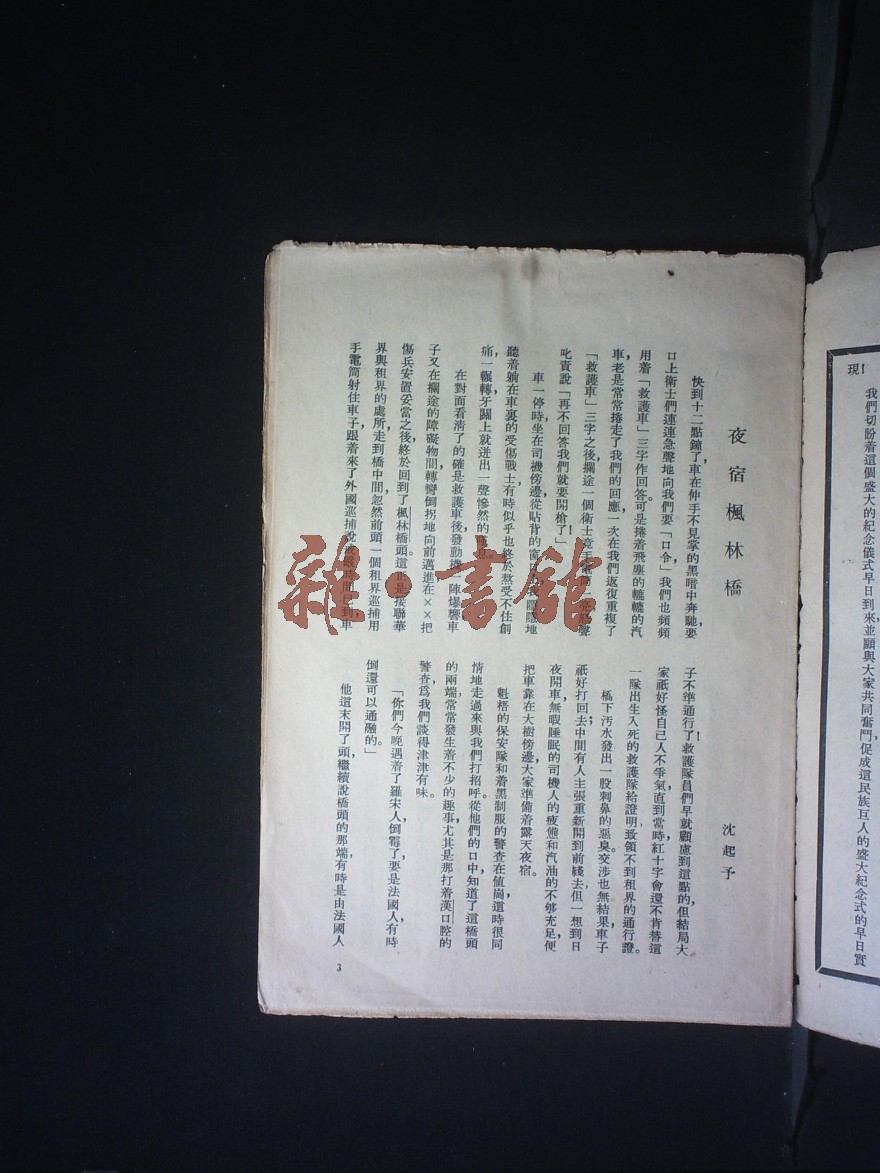 現！
我們切盼着這個盛大的紀念儀式早日到來並願與大家共同奮鬥促成這民族巨人的盛大紀念式的早日實
夜宿楓林橋
沈起予
快到十二點鐘了，車在伸手不見掌的黑暗中奔馳，要
口上衛士們連連急聲地向我們要「口令」我們也頻頻
用着「救護車」三字作回答。可是捲着飛塵的轆轆的汽
車，老是常常捲走了我們的回應，一次在我們返復重複了
「救護車」三字之後，攔途一個衛士竟手
聲
叱責說「再不回答我們就要開槍了！」
車一停時，坐在司機傍邊，從貼背的窗
我隱隱地
聽着躺在車裏的受傷戰士，有時似乎也終於熬受不住創
痛，一輾轉，牙關上就迸出一聲慘然的
在對面看清了的確是救護車後，發動機一陣爆響，車
子又在攔途的障礙物間轉彎倒拐地向前邁進，在××把
傷兵安置妥當之後，終於回到了楓林橋頭。這正是接聯華
界與租界的處所，走到橋中間，忽然前頭一個租界巡捕用
手電筒射住車子，跟着來了外國巡捕，說
時間已到，車
子不準通行了！救護隊員們早就顧慮到這點的，但結局大
家祇好怪自己人不爭氣，直到當時，紅十字會還不肯替這
一隊出生入死的救護隊給證明，致領不到租界的通行證。
橋下污水發出一股刺鼻的惡臭。交涉也無結果，車子
祇好打回去；中間有人主張重新開到前綫去，但一想到日
夜開車，無暇睡眠的司機人的疲憊和汽油的不够充足，便
把車靠在大樹傍邊，大家準備着露天夜宿。
魁梧的保安隊和着黑制服的警查在値崗，這時很同
情地走過來與我們打招呼。從他們的口中，知道了這橋頭
的兩端常常發生着不少的趣事，尤其是那打着漢口腔的
警查爲我們談得津津有味。
「你們今晚遇着了羅宋人，倒霉了，要是法國人，有時
倒還可以通融的」。
他這末開了頭，繼續說橋頭的那端，有時是由法國人
3
雜·書館